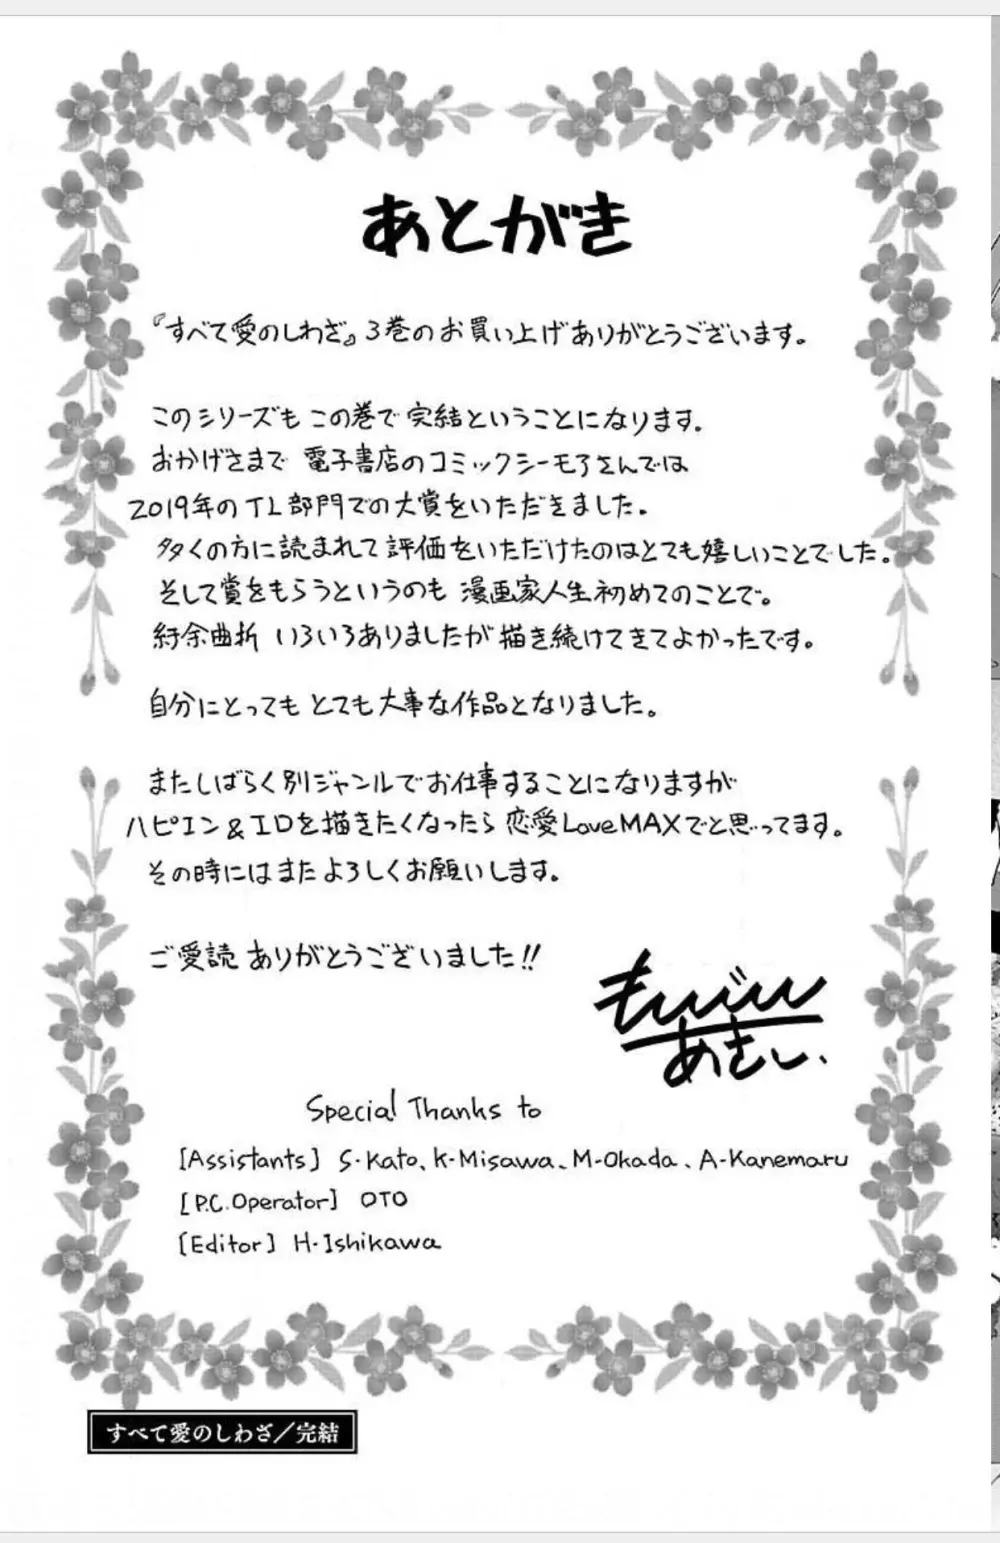 あとがき
『すべて愛のしわざ』3巻のお買い上げありがとうございます。
このシリーズもこの巻で完結ということになります。
おかげさまで 電子書店のコミックシーモアさんでは
2019年のTL部門での大賞をいただきました。
多くの方に読まれて評価をいただけたのはとても嬉しいことでした。
そして賞をもらうというのも 漫画家人生初めてのことで。
紆余曲折 いろいろありましたが描き続けてきてよかったです。
自分にとっても とても大事な作品となりました。
またしばらく別ジャンルでお仕事することになりますが
ハピエン&エロを描きたくなったら 恋愛LoveMAXでと思ってます。
その時にはまたよろしくお願いします。
ご愛読 ありがとうございました!!
めさし.
Special Thanks to
[Assistants] S・Kato、K-Misawa、M-Okada、A-Kanemaru
[P.C.Operator] OTO
[Editor] H・Ishikawa
すべて愛のしわざ／完結